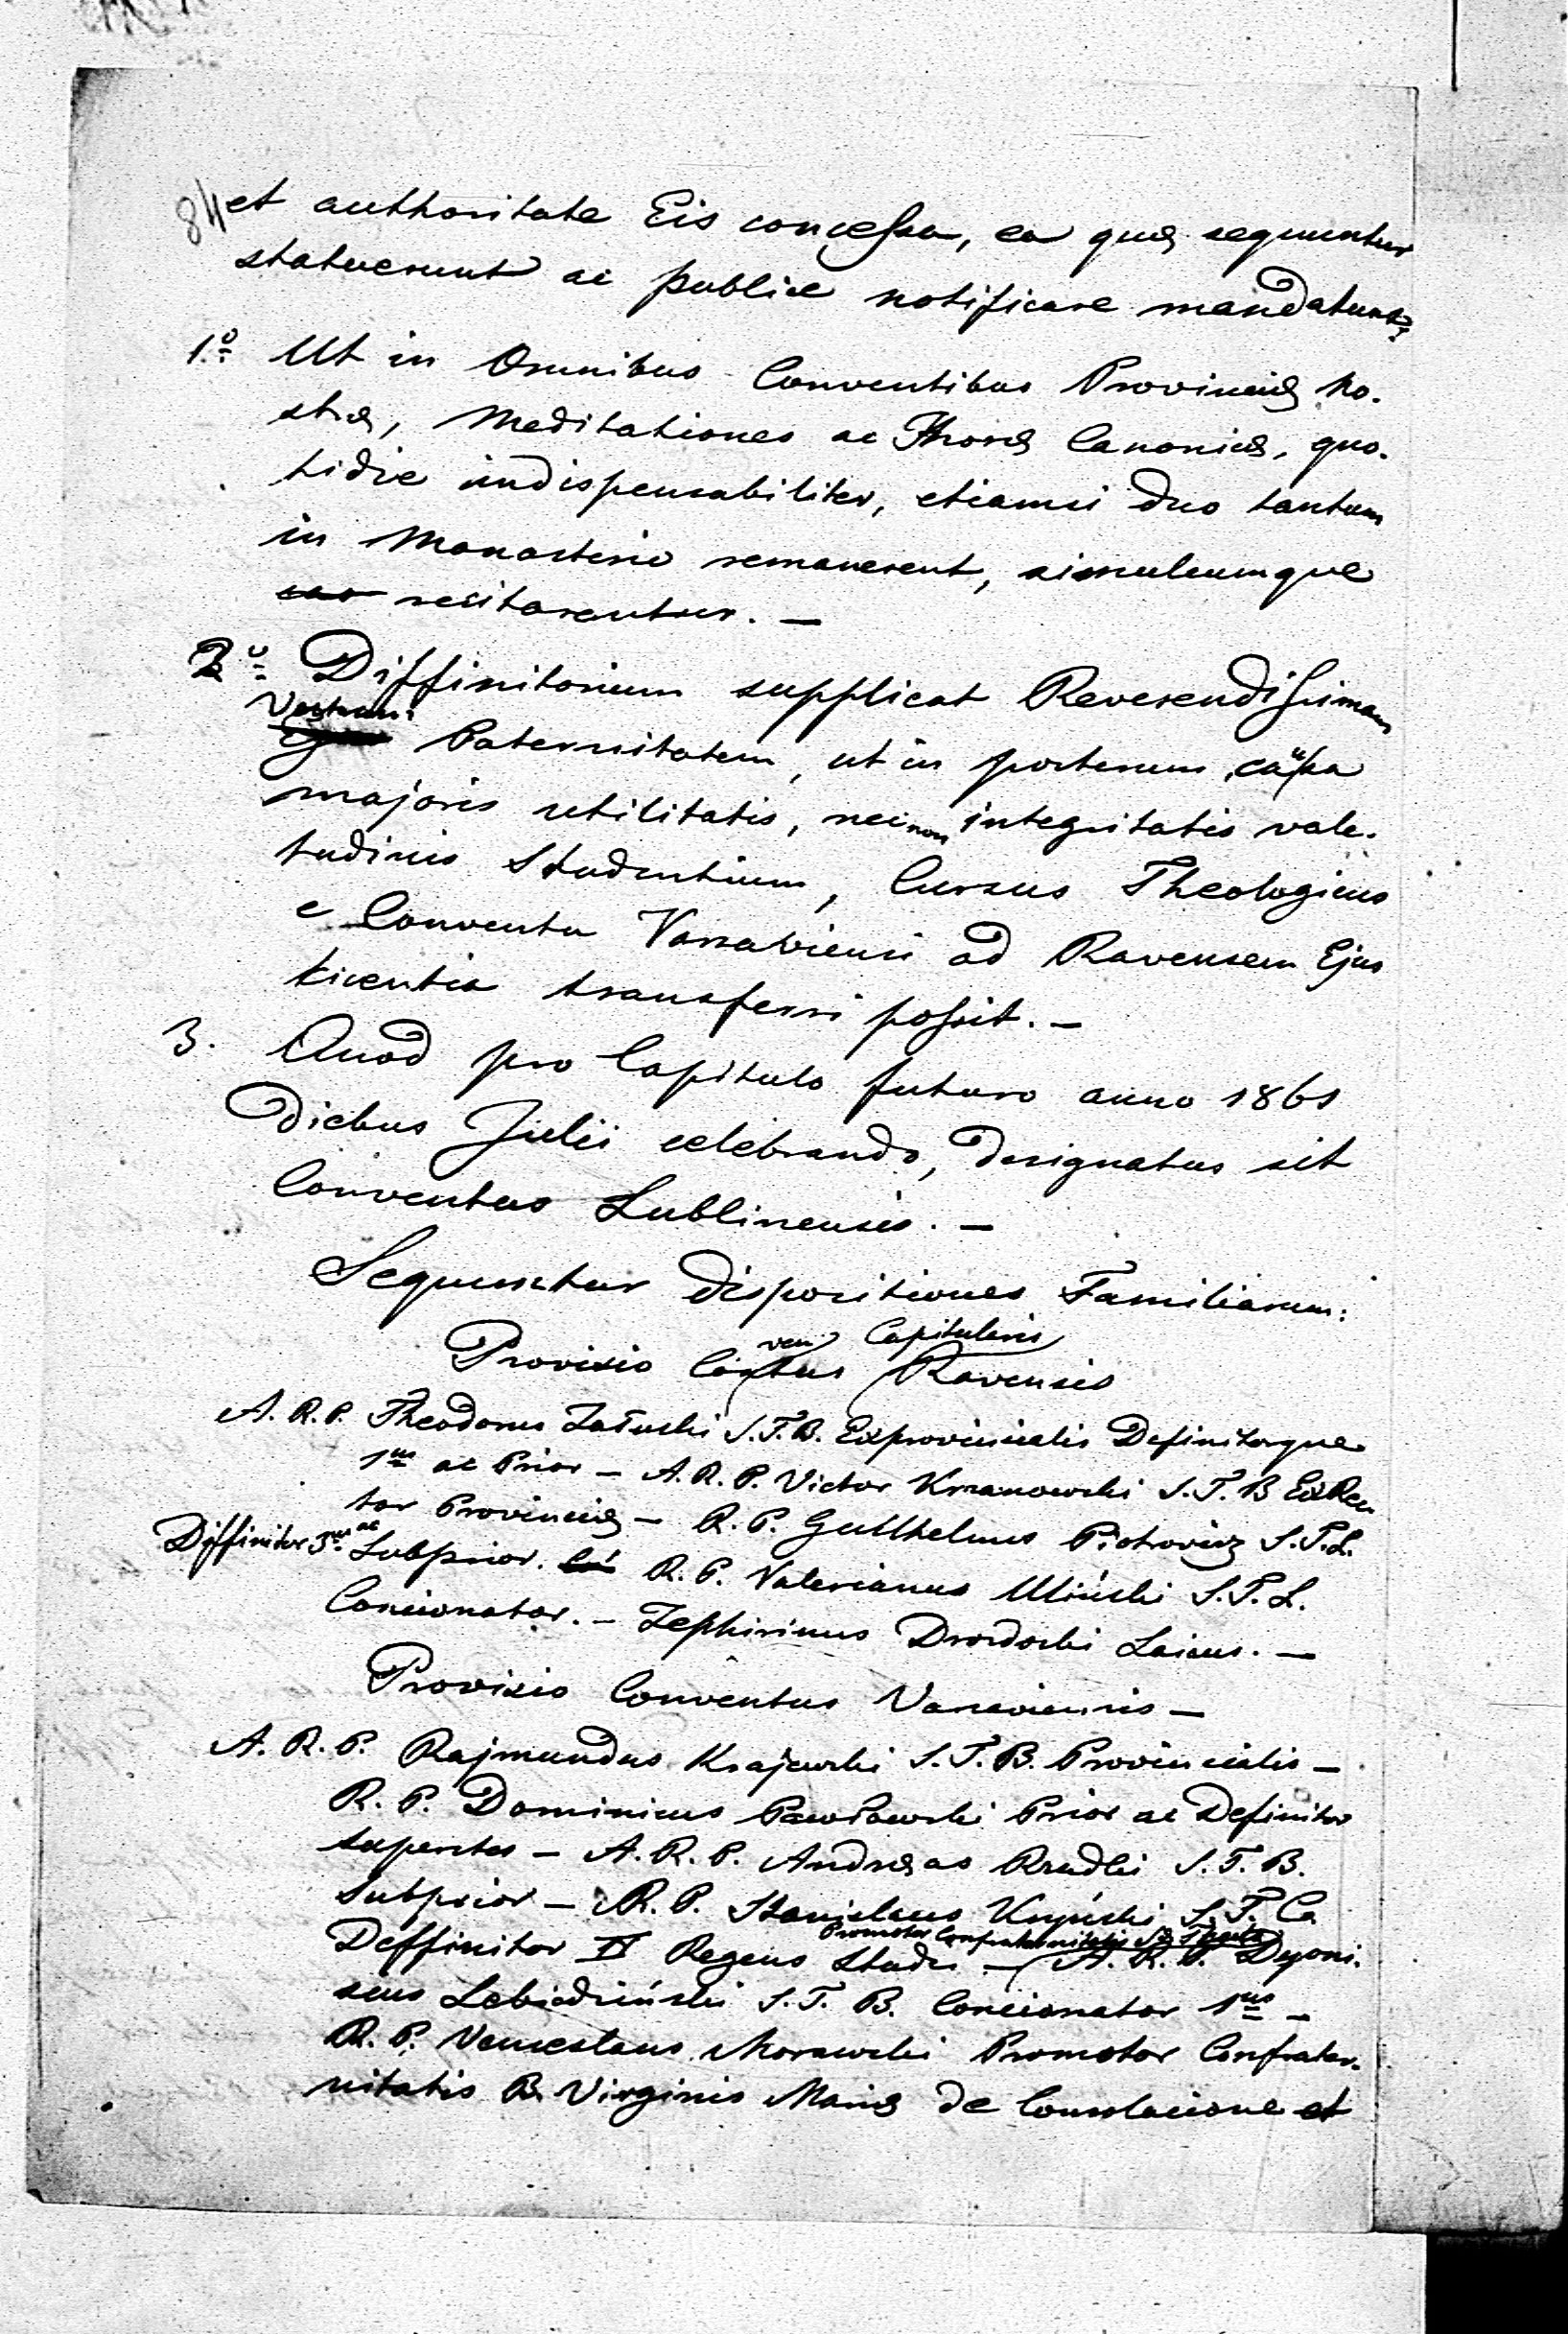 84 et authoritate Eis conceſsa, ea quæ sequuntur
statuerunt ac publice notificare mandarunt:
1º Ut in Omnibus Conventibus Provinciæ no-
stræ, Meditationes ac Horæ Canonicæ, quo-
tidie indispensabiliter, etiamsi duo tantum
in Monasterio remanerent, simulcumque
recitarentur. —
2º Diffinitorium supplicat Reverendiſsimam
Vestram
Paternitatem, ut in posterum, cauſsa
majoris utilitatis, nec non integritatis vale-
tudinis Studentium, Cursus Theologicus
e Conventu Varsaviensi ad Ravensem Ejus
licentia transferri poſsit. —
3. Quod pro Capitulo futuro anno 1861
diebus Julii celebrando, designatus sit
Conventus Lublinensis. —
Sequuntur dispositiones Familiarum:
Provisio Conventus Capitularis Ravensis
A. R. P. Theodorus Załuski S.T.B. Exprovincialis Definitorque
1us ac Prior — A. R. P. Victor Krzanowski S.T.B ExRec
tor Provinciæ — R. P. Gullhelmus Piotrowicz S.T.L.
Diffinitor 3us ac Subprior. R. P. Valerianus Uliński S.T.L.
Concionator. — Zephirinus Drozdoski Laicus. —
Provisio Conventus Varsaviensis —
A. R. P. Rajmundus Krajewski S.T.B. Provincialis —
R. P. Dominicus Pawłowski Prior ac Definitor
superstes — A. R. P. Andreas Rudki S.T.B.
Subprior — R. P. Stanislaus Kupiński S.T.
Promotor Confraternitatis
Deffinitor II Regens Studii — A. R. P. Dyoni-
sius Lebiedziński S.T.B. Concionator 1us —
R. P. Venceslaus Morawski Promotor Confrater-
nitatis B. Virginis Mariæ de Consolacione et